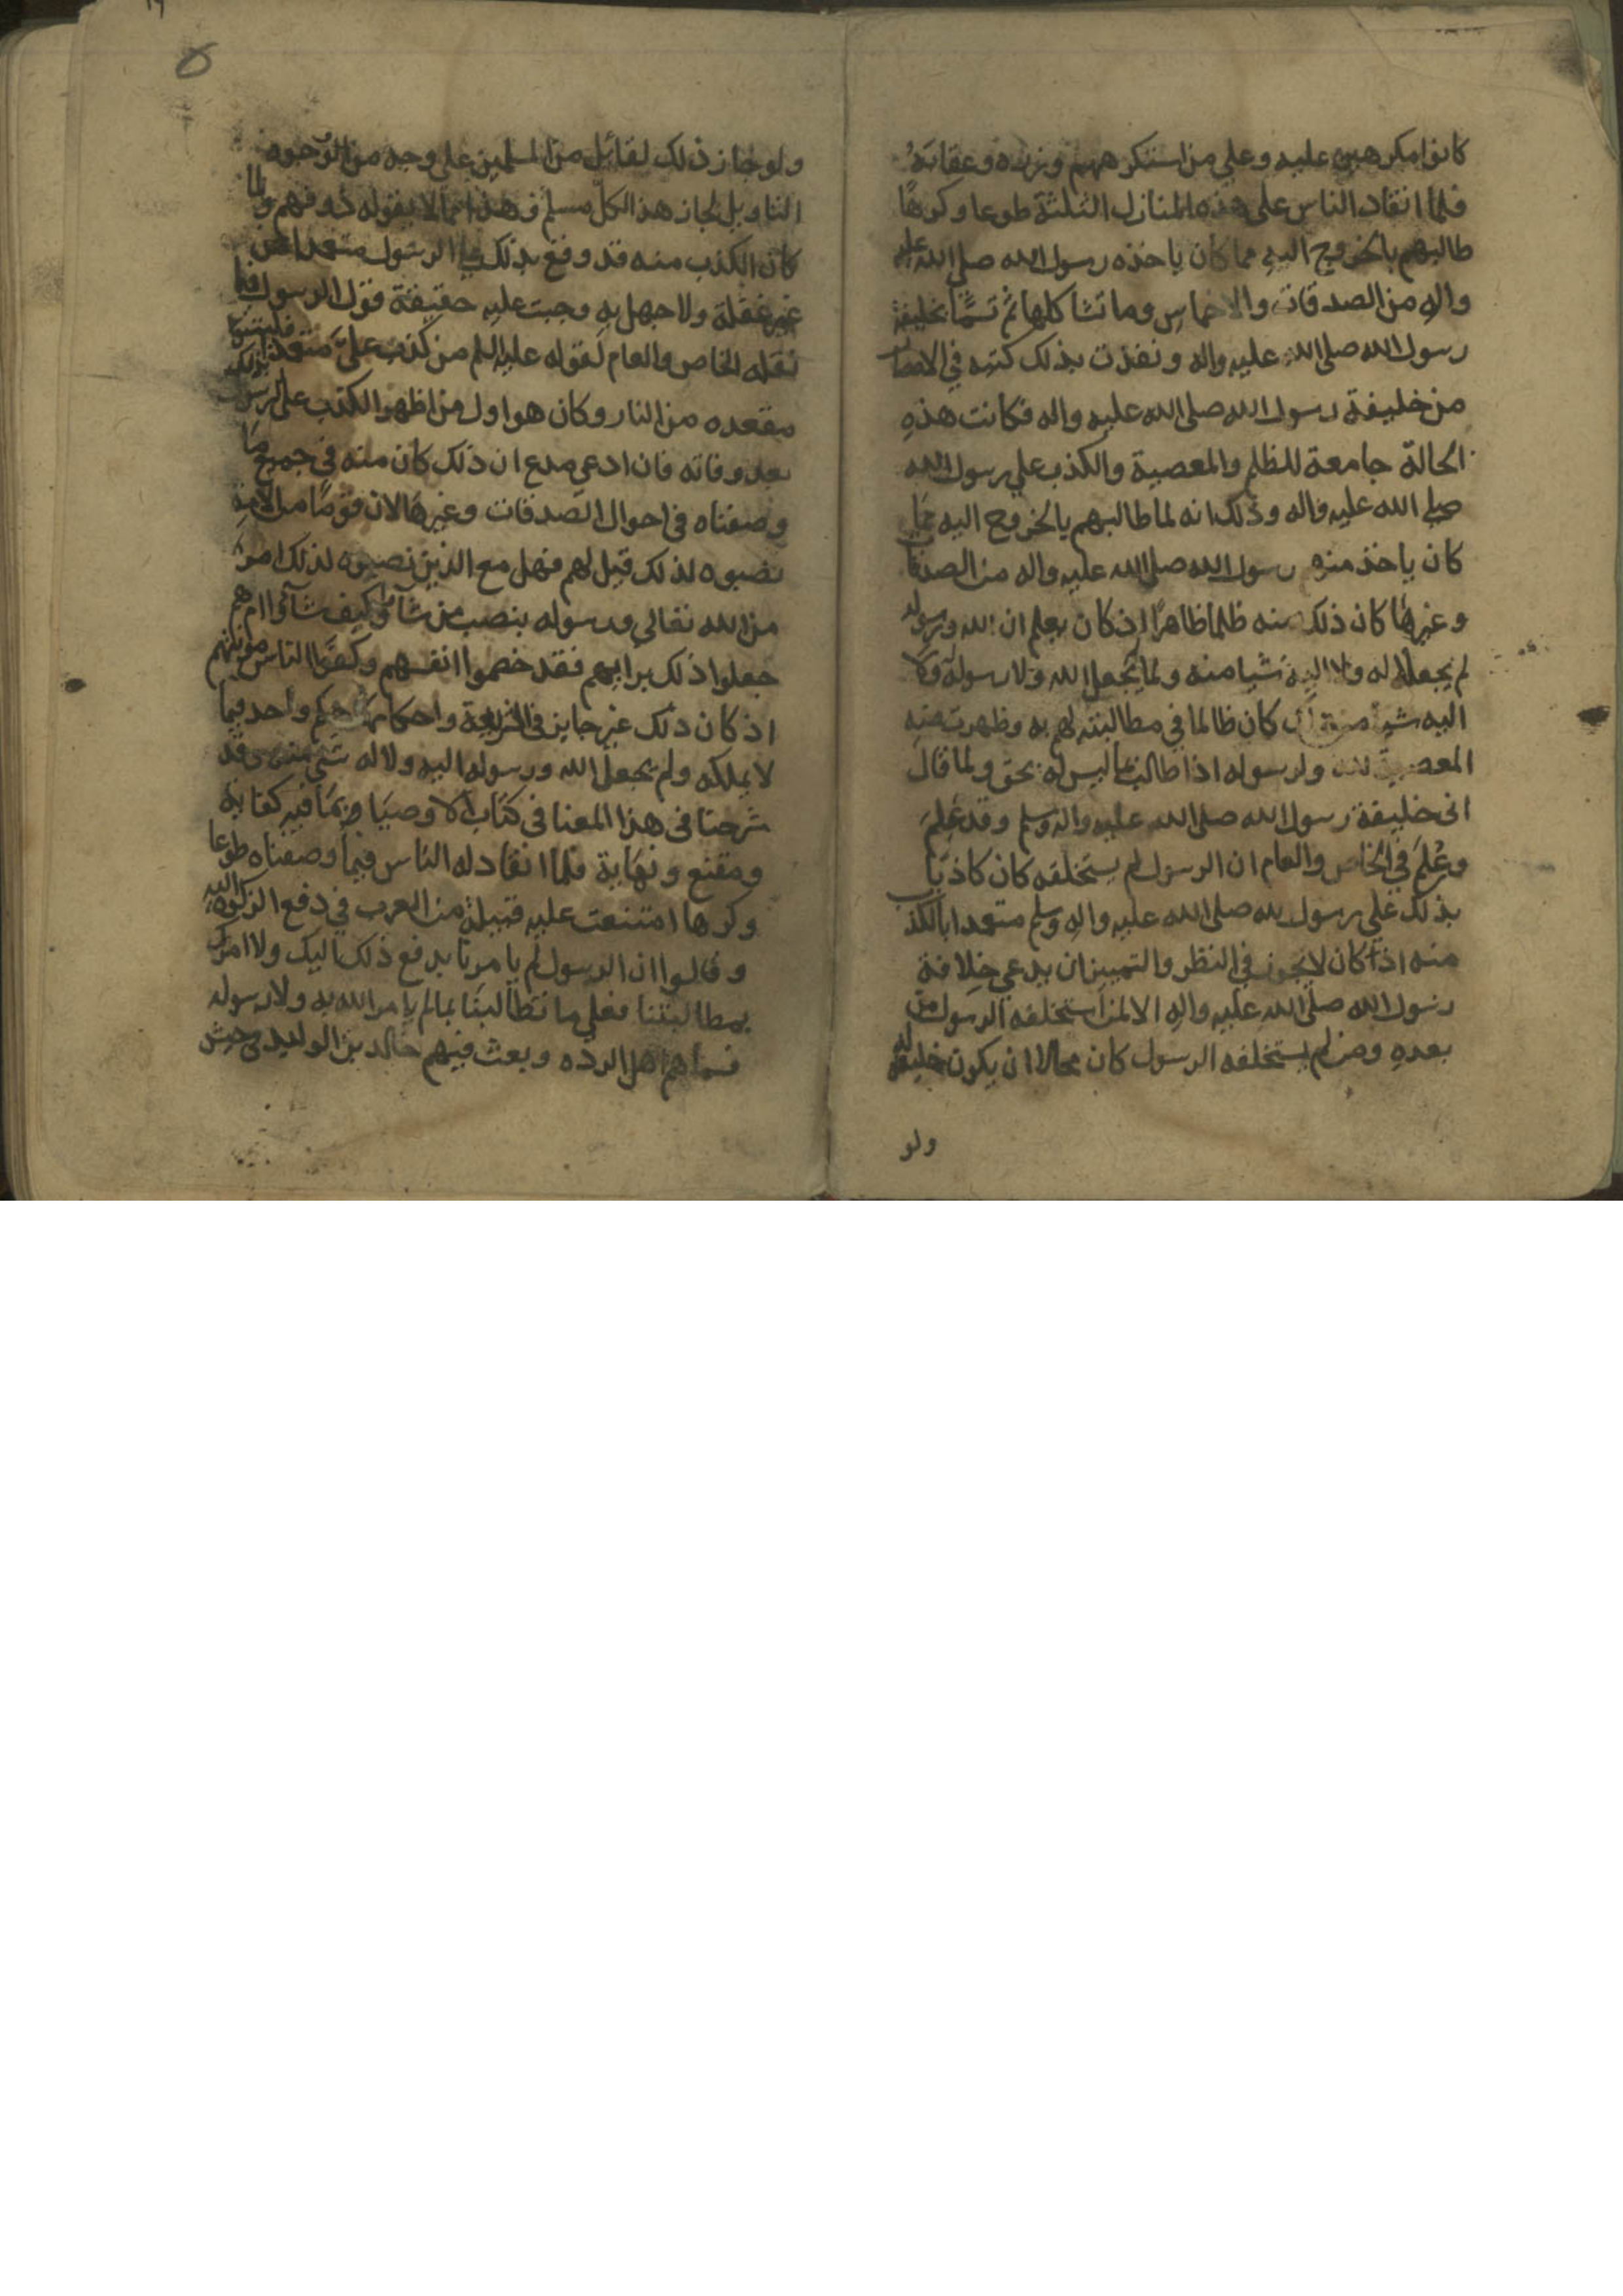 كانوا مكرهين عليه وعلي من استكرههم وزره وعقابه
فلما انقاد الناس علي هذه المنازل الثلثة طوعا وكرها
طالبهم بالخروج اليه مما كان ياخذه رسول الله صلي الله عليه
واله من الصدقات والاخماس وما تشاكلها ثم تسمّا بخليفة
رسول الله صلي الله عليه واله ونفذت بذلك كتبه في الامصار
من خليفة رسول الله صلي الله عليه واله فكانت هذه
الحالة جامعة للظلم والمعصية والكذب علي رسول الله
صلي الله عليه واله وذلك انه لما طالبهم بالخروج اليه مما
كان ياخذ منهم رسول الله صلي الله عليه واله من الصدقات
وغيرها كان ذلك منه ظلما ظاهرًا اذ كان يعلم ان الله ورسوله
لم يجعلا له ولا اليه شيا منه ولما يجعل الله ولا رسوله ولا
اليه شيا منه كان ظالما في مطالبته لهم به وظهرت منه
المعصية لله ولرسوله اذا طالب بما ليس له بحق ولما قال
انى خليفة رسول الله صلي الله عليه واله وسلم وقد عَلِمَ
وعُلِمَ في الخاص والعام ان الرسول لم يستخلفه كان كاذبًا
بذلك علي رسول الله صلي الله عليه واله وسلم متعمدا بالكذب
منه اذا كان لا يجوز في النظر والتمييز ان يدعي خلافة
رسول الله صلي الله عليه واله الا لمن استخلفه الرسول من
بعده ومن لم يستخلفه الرسول كان محالا ان يكون خليفة له
ولو
ولو جاز ذلك لقائل من المسلمين علي وجه من الوجوه
التاويل لجاز هذا لكلّ مسلم وهذا مما لا يقوله ذو فهم ولما
كان الكذب منه قد وقع بذلك علي الرسول متعمدا من
غير غفلة ولا جهل به وجبت عليه حقيقة قول الرسول فيما
نقله الخاص والعام لقوله عليه السلم من كذب عليّ متعمدا فليتبوا
مقعده من النار وكان هو اول من اظهر الكذب علي الرسول
بعد وفاته فان ادعي مدع ان ذلك كان منه في جميع ما
وصفناه في احوال الصدقات وغيرها لان قوما من الامة
نصبوه لذلك قيل لهم فهل مع الذين نصبوه لذلك امر
من الله تعالي ورسوله بنصب من شاوا وكيف شآوا ام هم
جعلوا ذلك برايهم فقد خصموا انفسهم وكفوا الناس مؤنتهم
اذ كان ذلك غير جايز في الشريعة واحكامها حكم واحد فيما
لا يملكه ولم يجعل الله ورسوله اليه ولا له شي منه وقد
شرحنا في هذا المعنا في كتاب الاوصيا ما فيه كفاية
ومقنع ونهاية فلما انقاد له الناس فيما وصفناه طوعا
وكرها امتنعت عليه قبيلة من العرب في دفع الزكوة اليه
وقالوا ان الرسول لم يامرنا بدفع ذلك اليك ولا امرك
بمطالبتنا فعلي ما تطالبنا بما لم يامر الله به ولا رسوله
فسماهم اهل الرده وبعث فيهم خالد بن الوليد في جيش